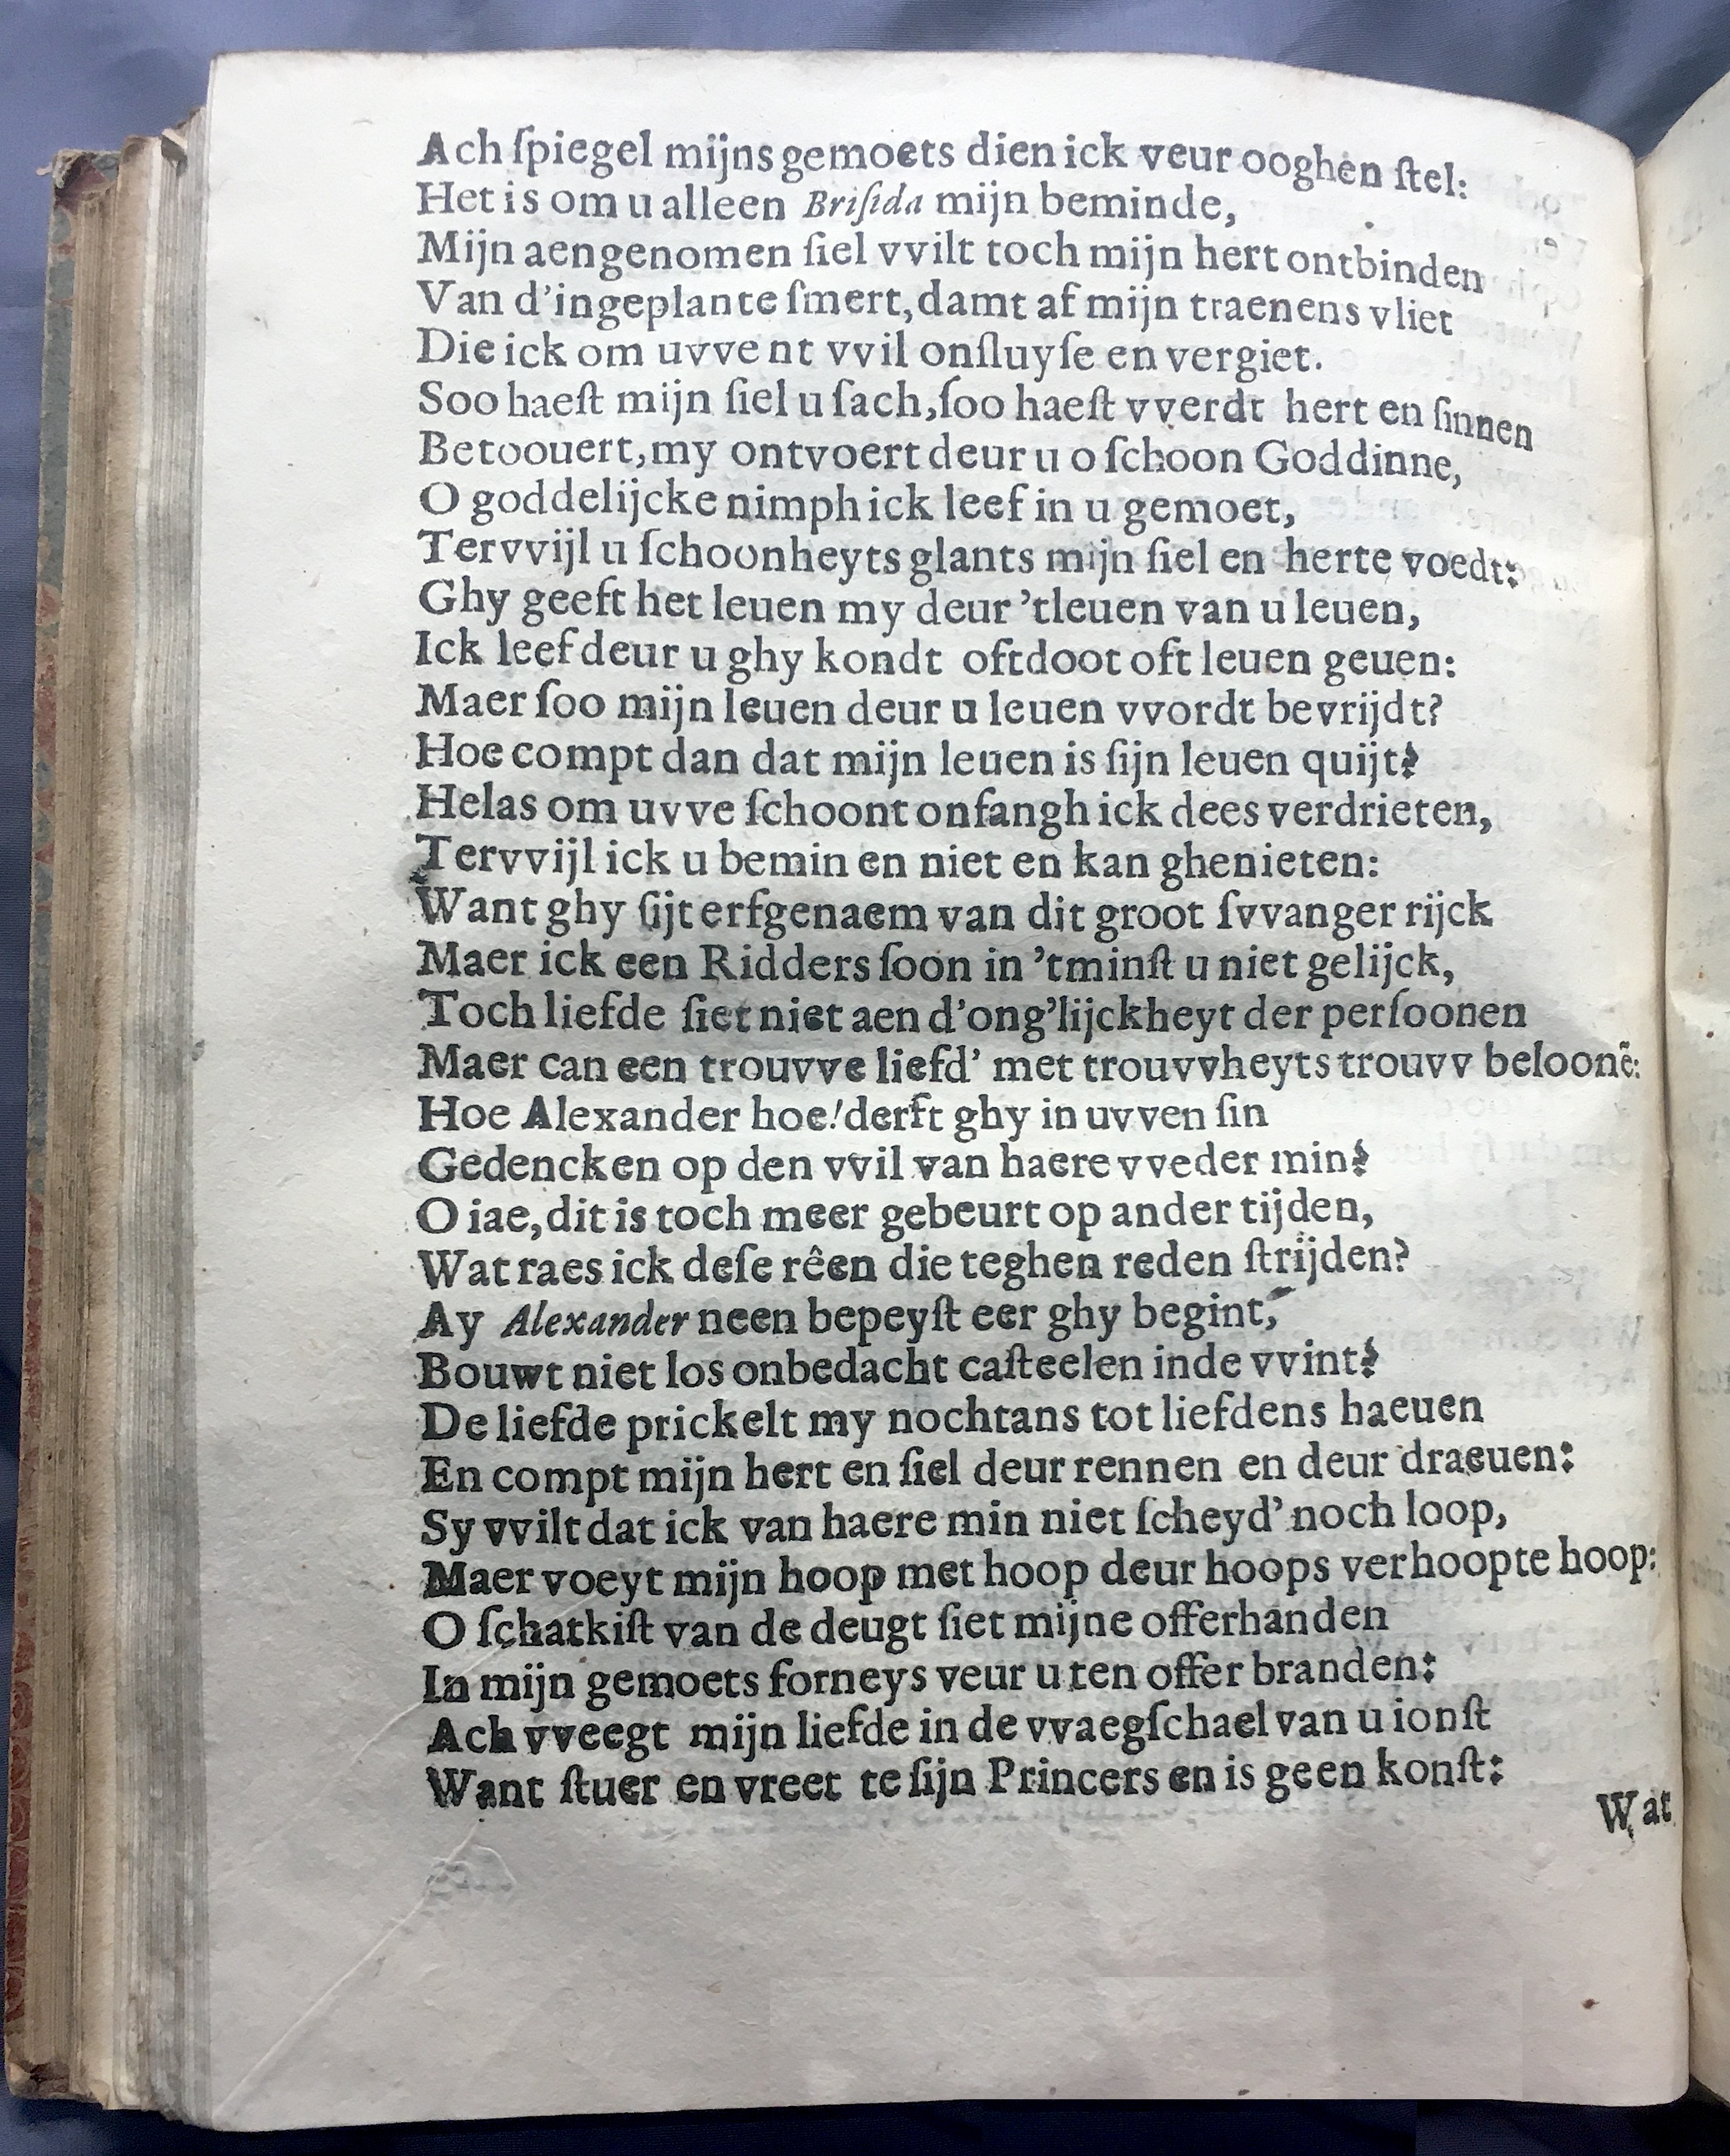 Ach ſpiegel mijns gemoets dien ick veur ooghen ſtel:
Het is om u alleen Briſida mijn beminde,
Mijn aengenomen ſiel vvilt toch mijn hert ontbinden
Van d'ingeplante ſmert, damt af mijn traenens vliet
Die ick om uvvent vvil onſluyſe en vergiet.
Soo haeſt mijn ſiel u ſach, ſoo haeſt vverdt hert en ſinnen
Betoouert, my ontvoert deur u o ſchoon Goddinne,
O goddelijcke nimph ick leef in u gemoet,
Tervvijl u ſchoonheyts glants mijn ſiel en herte voedt:
Ghy geeft het leuen my deur 'tleuen van u leuen,
Ick leef deur u ghy kondt oft doot oft leuen geuen:
Maer ſoo mijn leuen deur u leuen vvordt bevrijdt?
Hoe compt dan dat mijn leuen is ſijn leuen quijt?
Helas om uvve ſchoont onfangh ick dees verdrieten,
Tervvijl ick u bemin en niet en kan ghenieten:
Want ghy ſijt erfgenaem van dit groot ſvvanger rijck
Maer ick een Ridders ſoon in 'tminſt u niet gelijck,
Toch liefde ſiet niet aen d'ong'lijckheyt der perſoonen
Maer can een trouvve liefd' met trouvvheyts trouvv beloonē:
Hoe Alexander hoe! derft ghy in uvven ſin
Gedencken op den vvil van haere vveder min?
O iae, dit is toch meer gebeurt op ander tijden,
Wat raes ick deſe rêen die teghen reden ſtrijden?
Ay Alexander neen bepeyſt eer ghy begint,
Bouwt niet los onbedacht caſteelen inde vvint?
De liefde prickelt my nochtans tot liefdens haeuen
En compt mijn hert en ſiel deur rennen en deur draeuen:
Sy vvilt dat ick van haere min niet ſcheyd' noch loop,
Maer voeyt mijn hoop met hoop deur hoops verhoopte hoop:
O ſchatkiſt van de deugt ſiet mijne offerhanden
In mijn gemoets forneys veur u ten offer branden:
Ach vveegt mijn liefde in de vvaegſchael van u ionſt
Want ſtuer en vreet te ſijn Princers en is geen konſt:
Wat